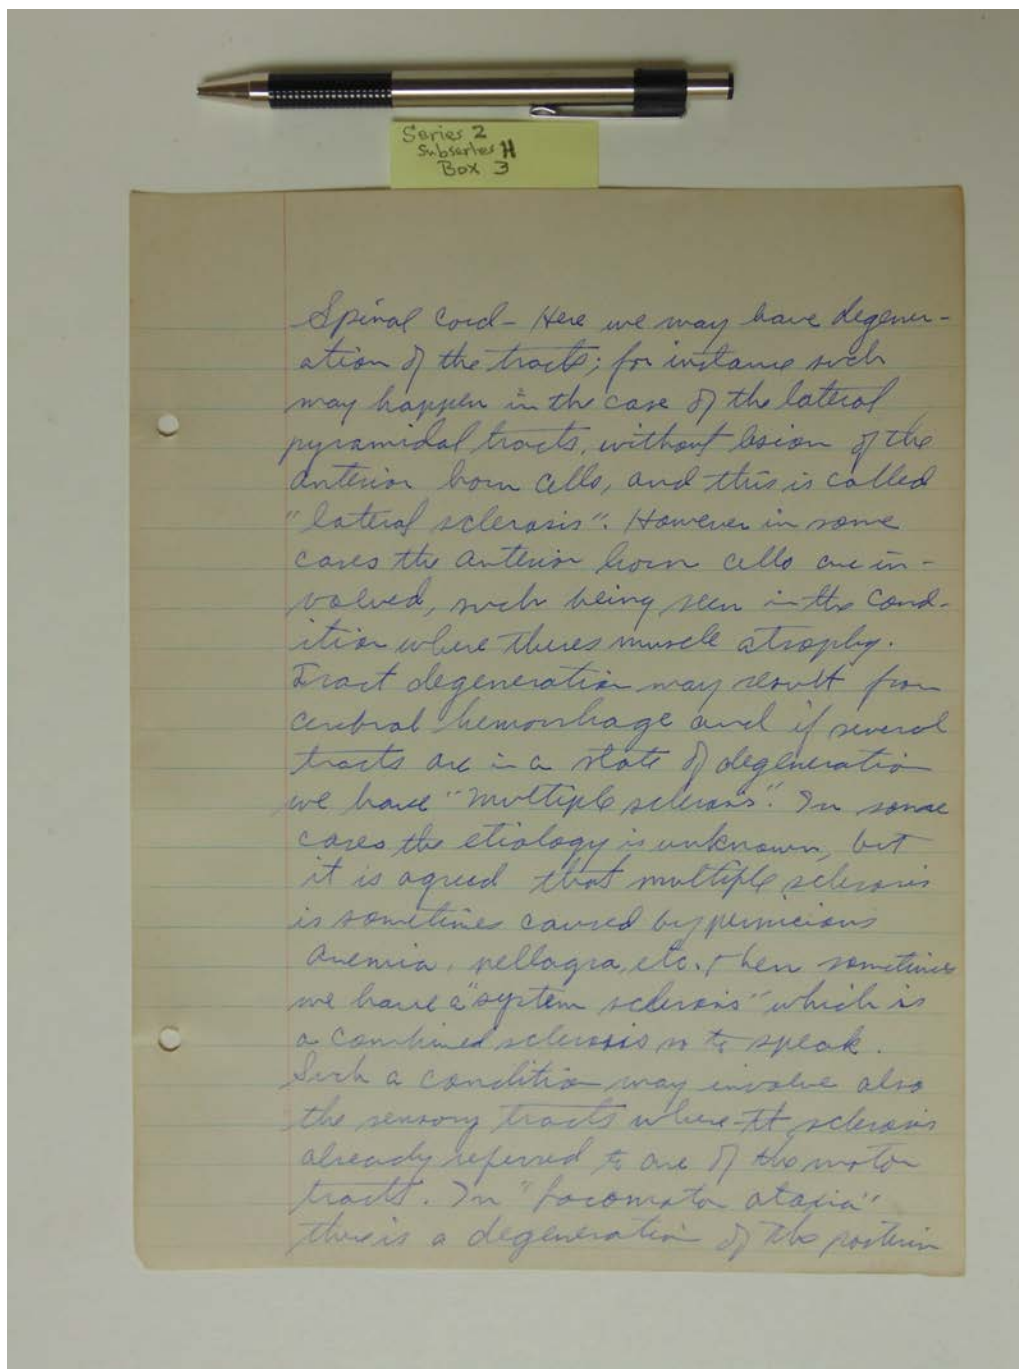 Series 2
Subseries H
Box 3
Spinal Cord - Here we may have degener-
ation of the tracts; for instance such
may happen in the case of the lateral
pyramidal tracts, without lesion of the
anterior horn cells, and this is called
"lateral sclerosis". However in some
cases the anterior horn cells are in-
volved, such being seen in the cond-
ition where theres muscle atrophy.
Tract degeneration may result from
cerebral hemorrhage and if several
tracts are in a state of degeneration
we have "multiple sclerosis". In some
cases the etiology is unknown, but
it is agreed that multiple sclerosis
is sometimes caused by pernicious
anemia, pellagra, etc. Then sometimes
we have a "system sclerosis" which is
a combined sclerosis so to speak.
Such a condition may involve also
the sensory tracts where the sclerosis
already referred to are of the motor
tracts. In "locomotor ataxia"
there is a degeneration of the posterior